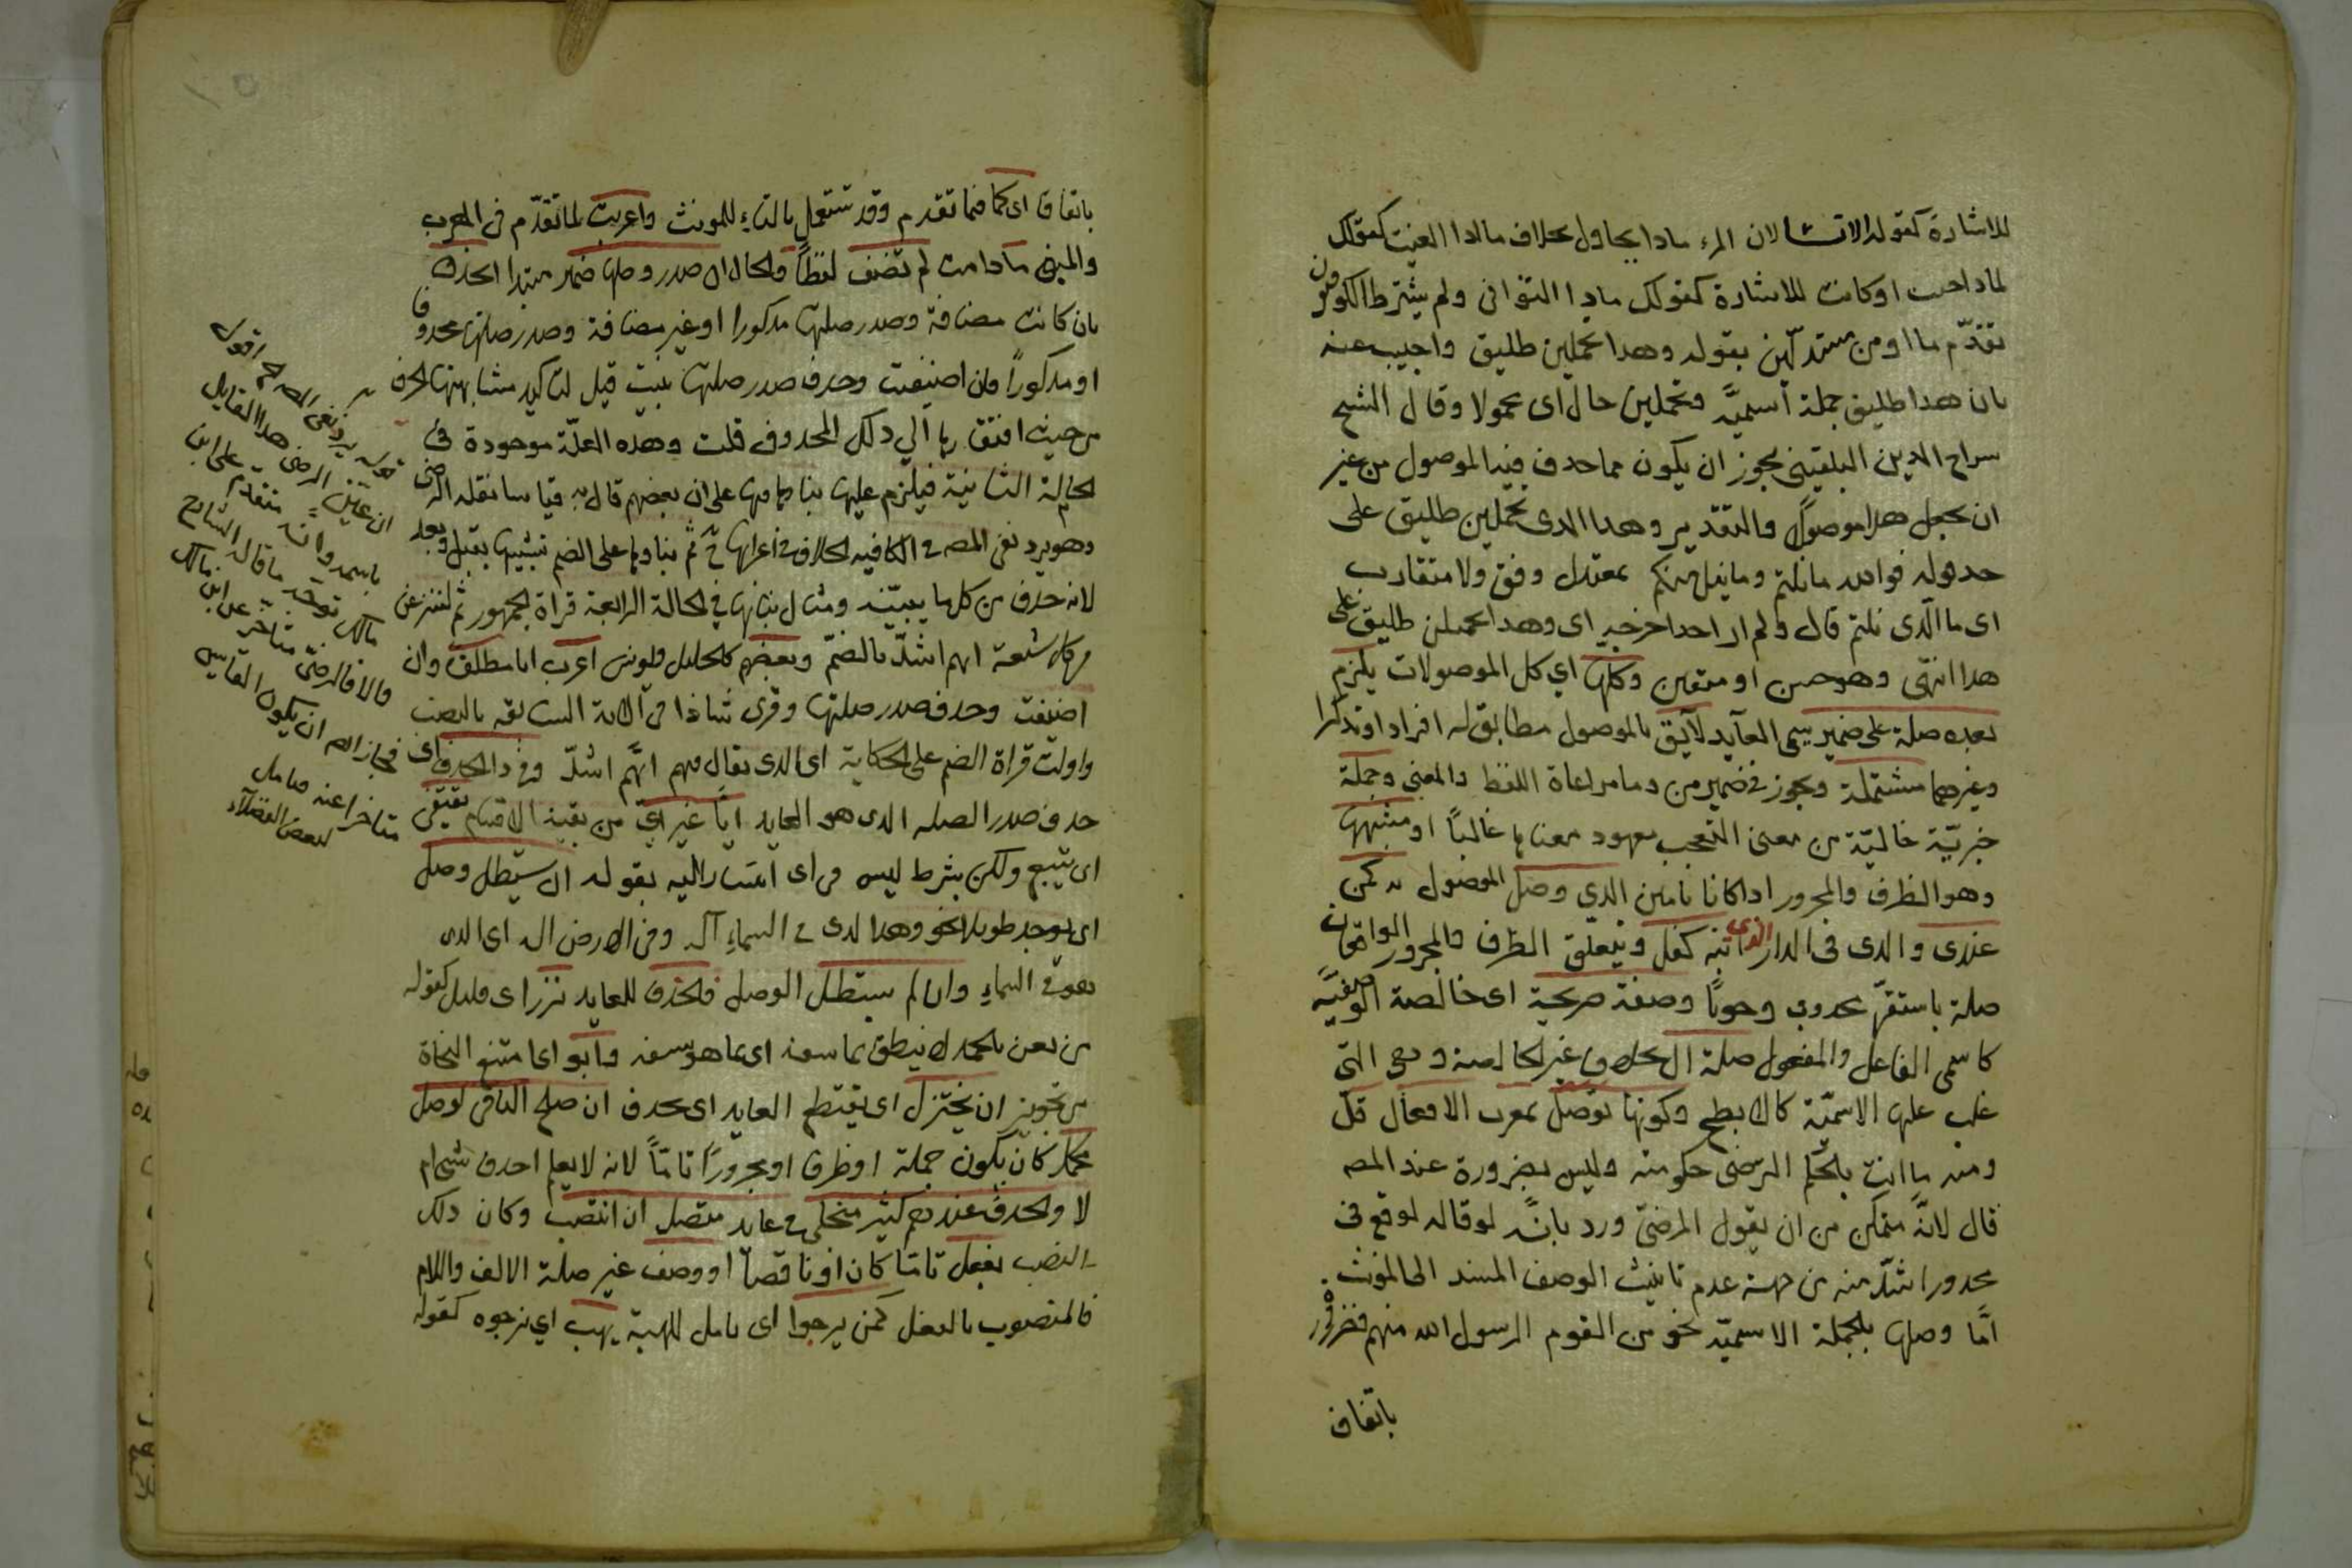 للاشارة كقوله الا تسالان المرء ماذا يحاول بخلاف ما اذا الغيت كقولك
لماذا جئت او كانت للاشارة كقولك ماذا التوانى ولم يشترط الكوفيون
تقدّم ما او من مستدلّين بقوله وهذا تحملين طليق واجيب عنه
بان هذا طليق جملة اسميّة وتحملين حال اى محمولا وقال الشيخ
سراج الدين البلقينى يجوز ان يكون مما حذف فيه الموصول من غير
ان يجعل هذا موصولاً والتقدير وهذا الذى تحملين طليق على
حد قوله فوالله ما نلتم وما نيل منكم بمعتدل وفق ولا متقارب
اى ما الّذى نلتم قال ولم ار احدا خرجه اى وهذا تحملين طليق على
هذا انتهى وهو حسن او متعين وكلها اي كل الموصولات يلزم
بعده صلة على ضمير يسمى العآيد لآيق بالموصول مطابق له افرادا وتذكيرا
وغيرهما مشتملة ويجوز فى ضمير من وما مراعاة اللفظ والمعنى وجملة
خبريّة خالية من معنى التعجب معهود معناها غالباً او شبهها
وهو الظرف والمجرور اذا كانا تامين الذي وصل الموصول به كمن
عندى والذى فى الدار الذى ابنه كفل ويتعلق الظرف والمجرور الواقعان
صلة باستقرّ محذوف وجوبًا وصفة صريحة اى خالصة الوصفيّة
كاسمى الفاعل والمفعول صلة ال بخلاف غير الخالصة وهى التى
غلب عليها الاسميّة كالابطح وكونها توصل بمعرب الافعال قلّ
ومنه ما انت بالحكم الترضى حكومته وليس بضرورة عند المصـ
قال لانّه متمكن من ان يقول المرضىّ ورد بانّه لو قاله لوقع فى
محذور اشدّ منه من جهة عدم تانيث الوصف المسند الى المؤنث
امّا وصلها بالجملة الاسميّة نحو من القوم الرسول الله منهم فضرورة
باتفاق
باتفاق اى كما فيما تقدم وقد تستعمل بالتاء للمونث واعربت لما تقدّم فى المعرب
والمبنى ما دامت لم تضف لفظاً والحال ان صدر وصلها ضمير مبتدا انحذف
بان كانت مضافة وصدر صلتها مذكورا او غير مضافة وصدر صلتها محذوفا
او مذكوراً فان اضيفت وحذف صدر صلتها بنيت قيل لتاكيد مشابهتها الحرف
من حيث افتقارها الي ذلك المحذوف قلت وهذه العلّة موجودة فى
الحالة الثانية فيلزم عليها بناؤها فيها على ان بعضهم قال به قياسا نقله الرضى
وهو يرد نفى المصـ فى الكافيه الخلاف فى اعرابها ثم بناؤها على الضم تشبيها بقبل وبعد
لانه حذف من كلها يبيّنه ومثال بنائها في الحالة الرابعة قراة الجمهور ثم لننزعن
من كل شيعة ايهم اشدّ بالضمّ وبعضهم كالخليل ويونس اعرب ايا مطلقا وان
اضيفت وحذف صدر صلتها وقرئ شاذا فى الاية السابقه بالنصب
واولت قراة الضم على الحكاية اى الذى يقال فيهم ايّهم اشدّ وفى ذا الحذف اى
حذف صدر الصله الذى هو العايد ايّا غير اىّ من بقية الاقسام يقتفى
اى يتبع ولكن بشرط ليس فى اى اشار اليه بقوله ان يستطل وصل
اى يوجد طويلا نحو وهو الذى فى السماءِ آله وفى الارض اله اى الذى
هو فى السماءِ وان لم يستطل الوصل فالحذف للعايد نزر اى قليل كقوله
من يعن بالحمد لا ينطق بما سفه اى بما هو سفه وابوا اى امتنع النحاة
من تجويز ان يختزل اى يقتطع العايد اى يحذف ان صلح الباقى لوصل
مكمل كان يكون جملة او ظرفا او مجرورًا تامّاً لانه لا يعلم احذف شئ ام
لا والحذف عندهم كثير منجلى فى عايد متصل ان انتصب وكان ذلك
النصب بفعل تامّا كان او ناقصاً او وصف غير صلة الالف واللام
فالمنصوب بالفعل كمن يرجوا اى يامل للهبة يهب اي نرجوه كقوله
قوله يرد نفى المصـ الخ اقول
ان عيّن الرضى هذا القايل
باسمه وانه متقدم على ابن
مالك توجه ما قاله الشارح
والا فالرضىّ متاخر عن ابن مالك
فجاز ان يكون القايس
متاخرا عنه فتامل
لبعض الفضلآء